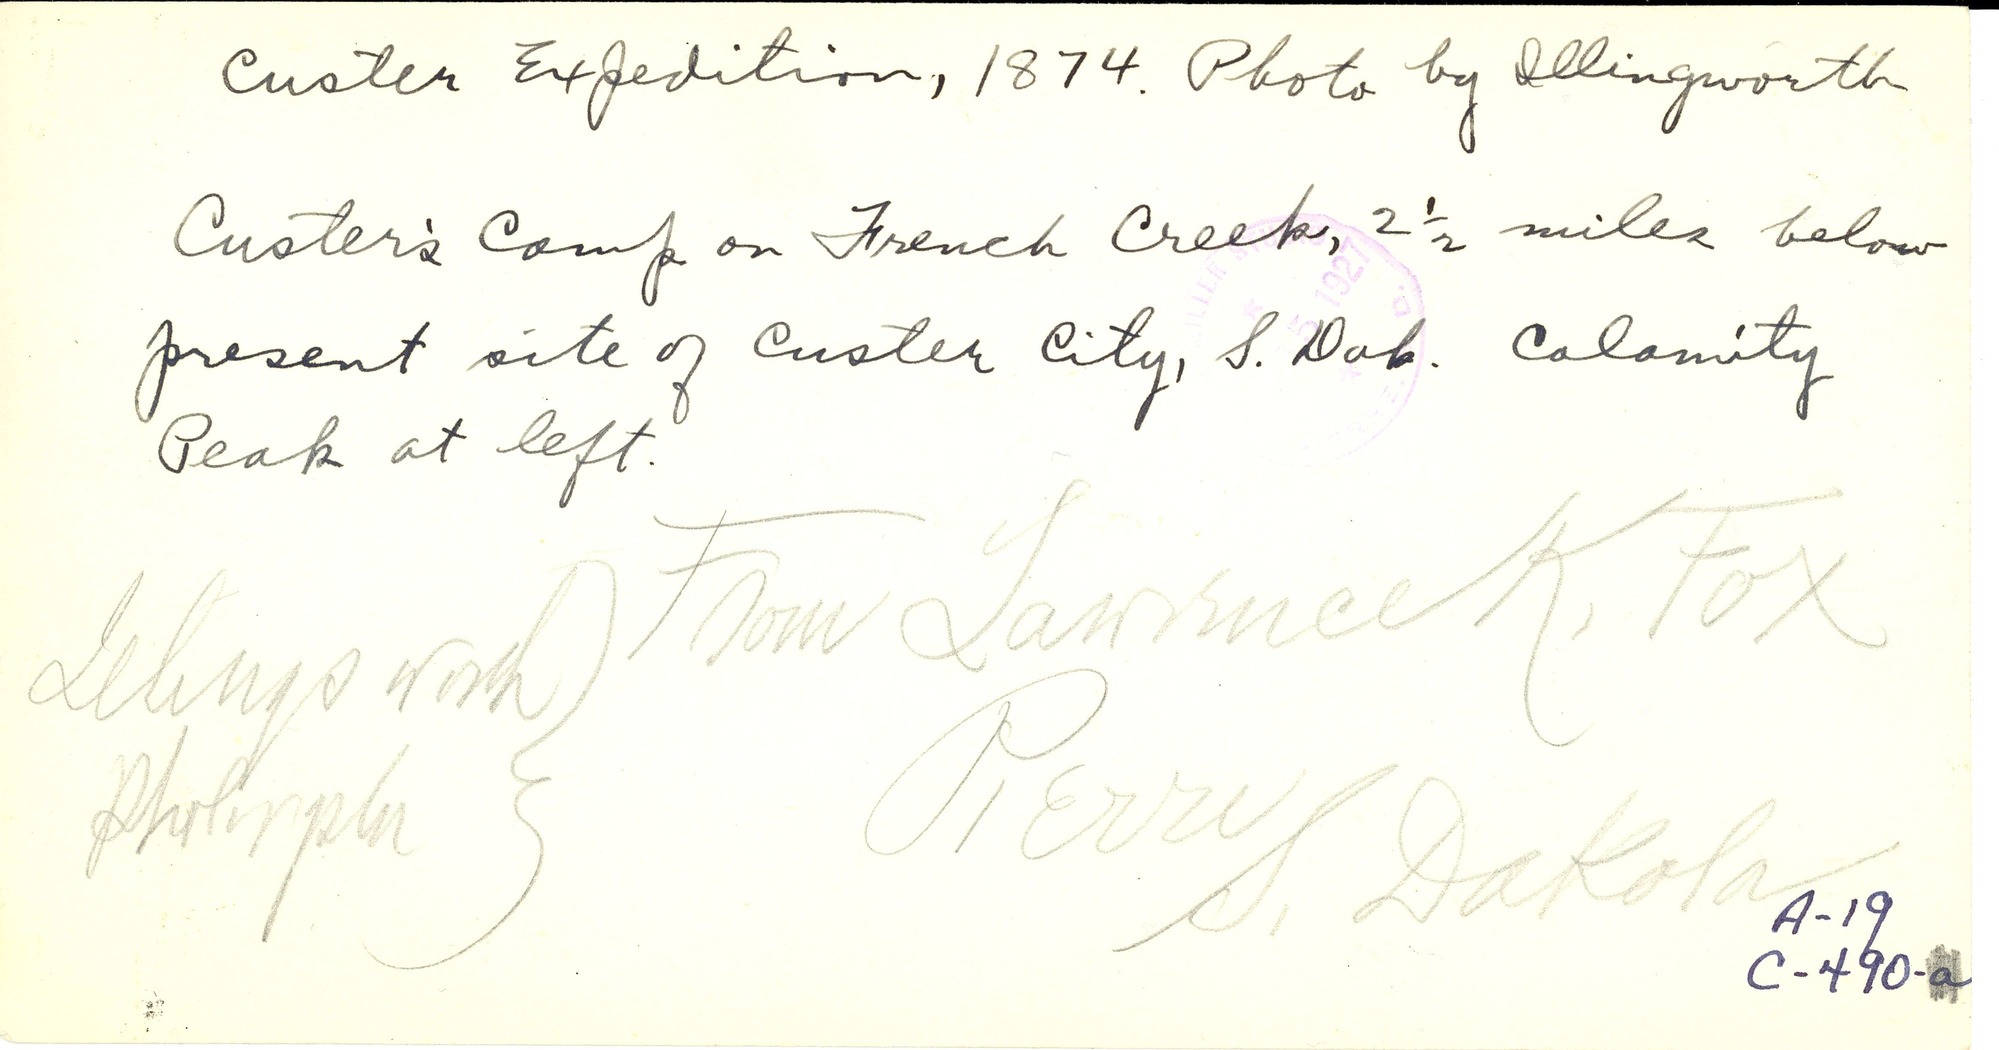 Custer Expedition, 1874. Photo by Illingworth
Custer's Camp on French Creek, 2½ miles below
present site of Custer City, S. Dak. Calamity
Peak at left.
From Lawrence K. Fox
Pierre
S. Dakota
1927
A-19
C-490-a